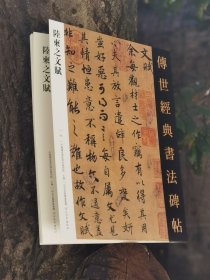 傳世經典書法碑帖
文賦
余每觀才士之作竊有以得其用
心夫其放言遣辭良多變矣妍
蚩好惡可得而言每自屬文尤見
其情恒患意不稱物文不逮意盖
非知之難能之難也故作文賦
陸柬之文賦
陸柬之文賦